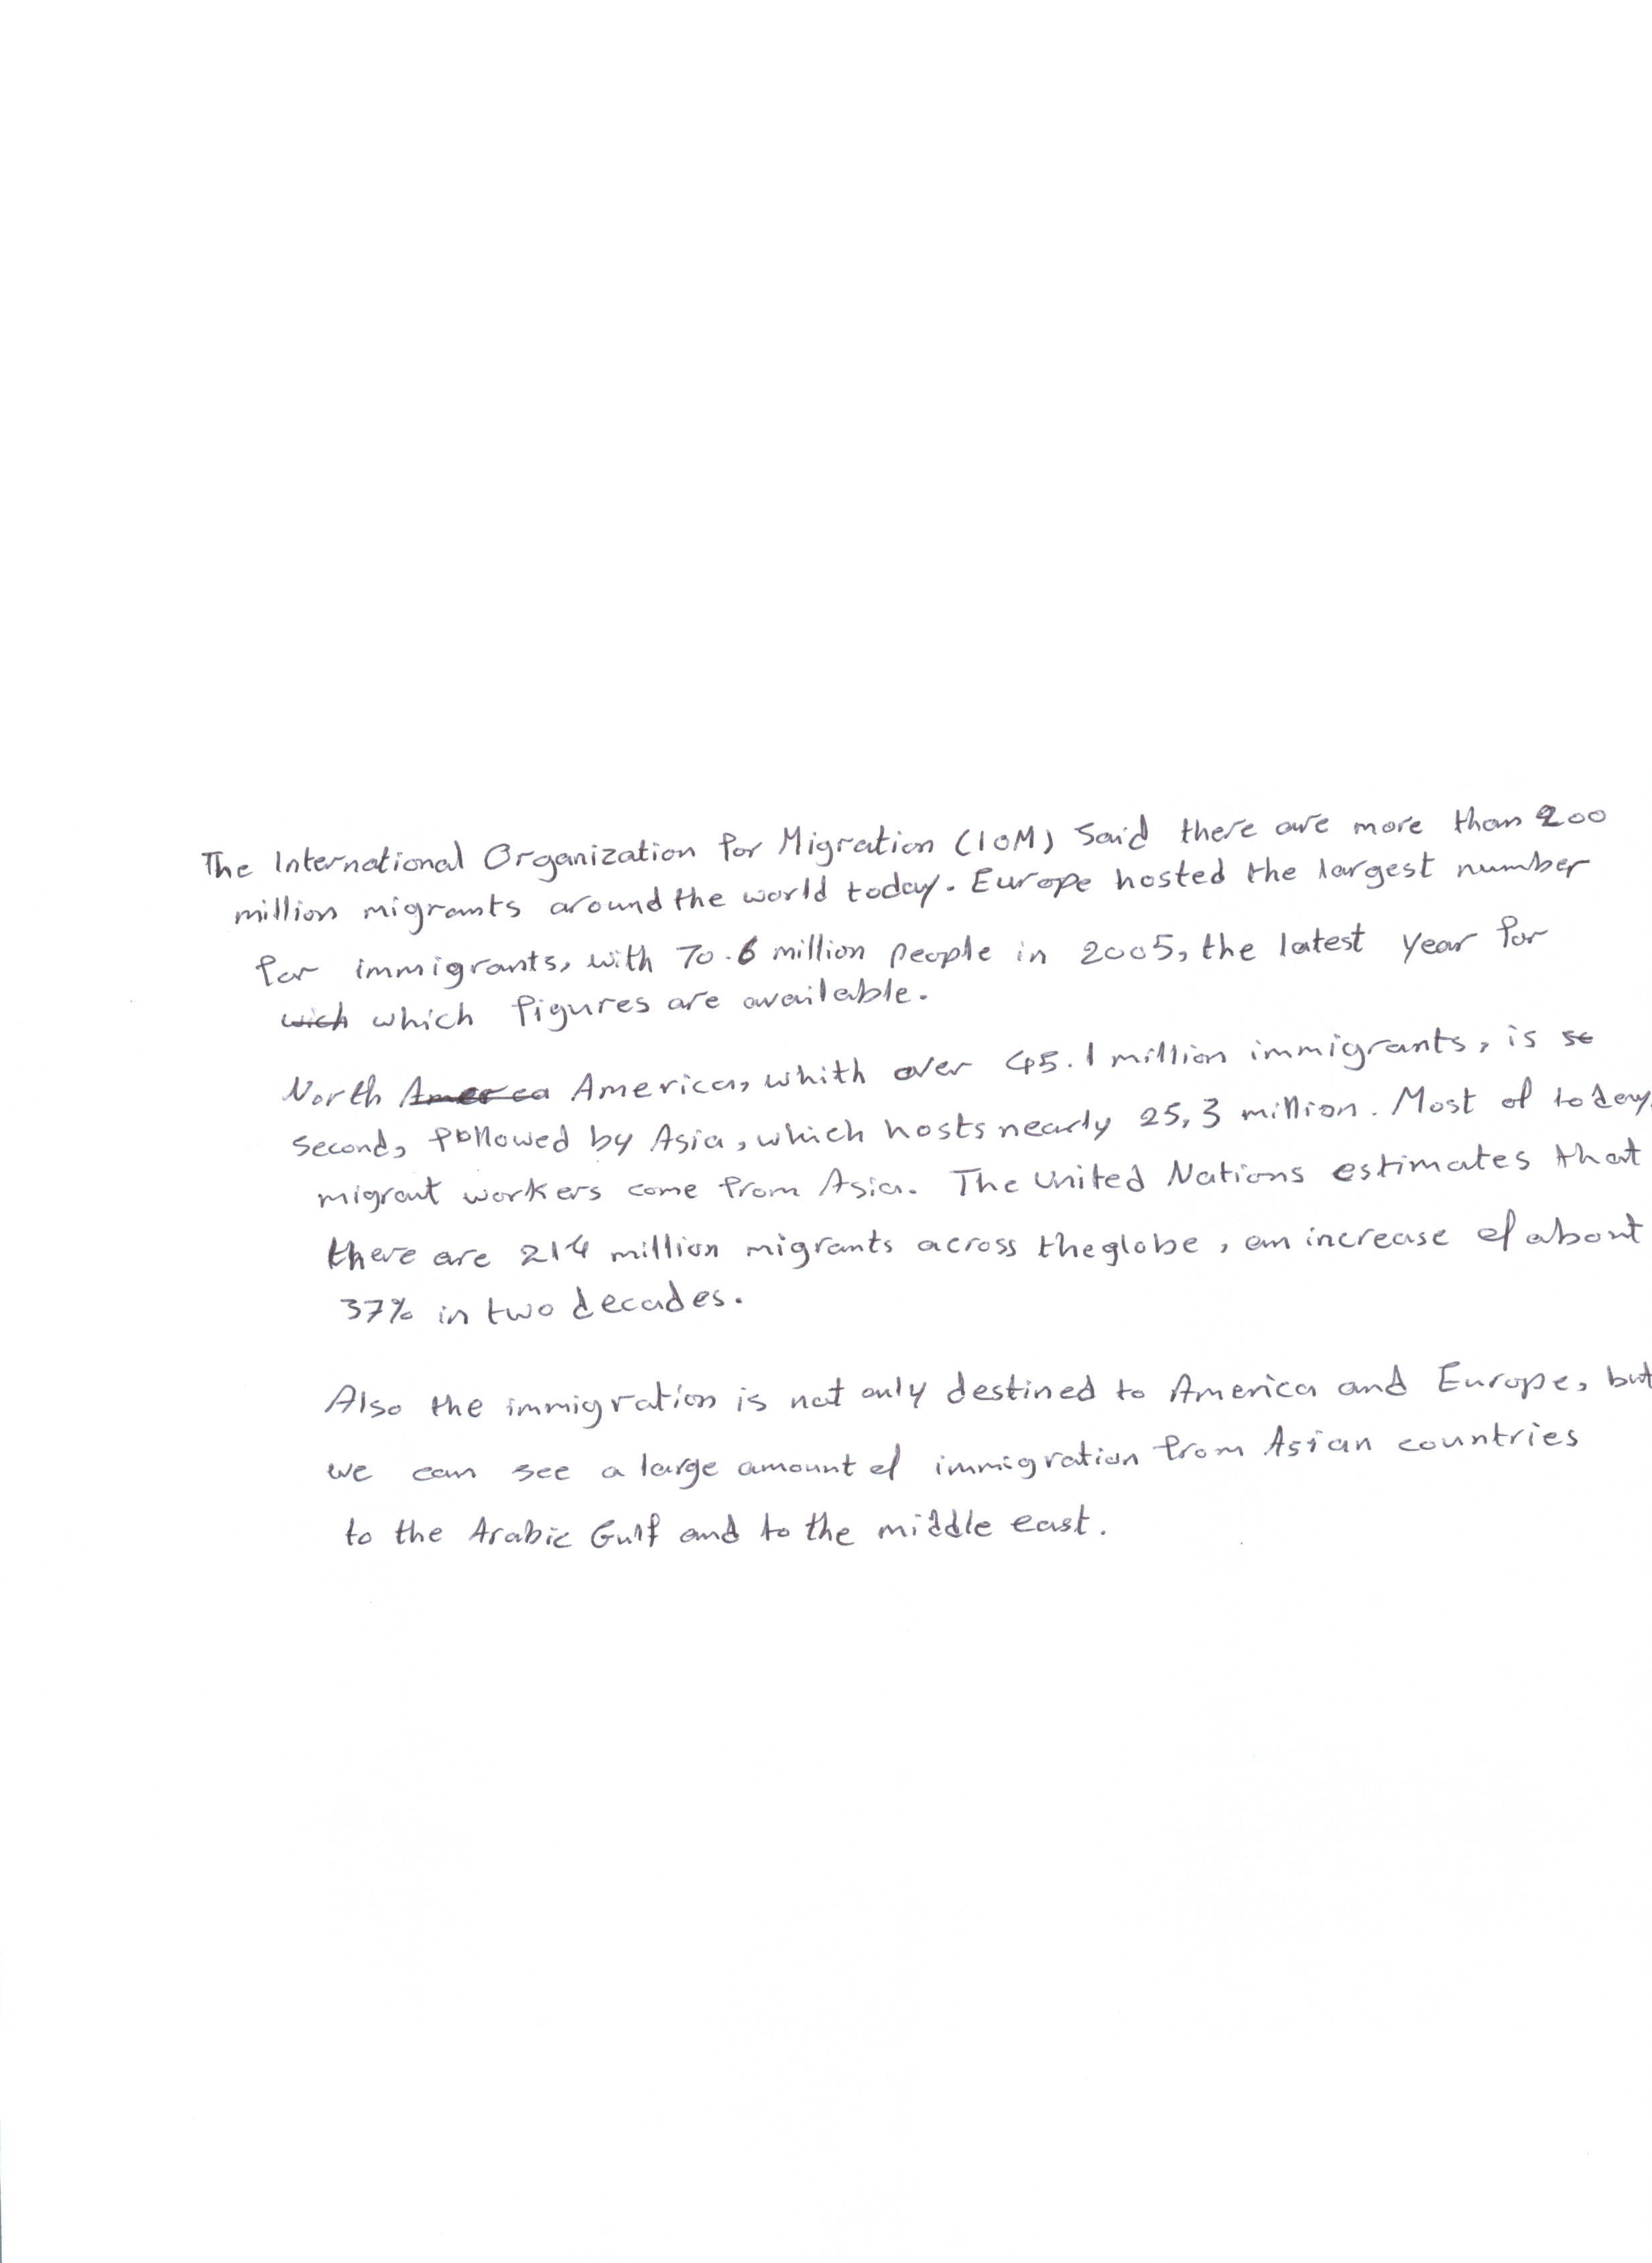 The International Organization for Migration (IOM) Said there are more than 200
million migrants around the world today. Europe hosted the largest number
for immigrants, with 70.6 million people in 2005, the latest year for
wich which figures are available.
North Amerca America, whith over 45.1 million immigrants, is se
second, followed by Asia, which hosts nearly 25,3 million. Most of today
migrant workers come from Asia. The United Nations estimates that
there are 214 million migrants across the globe, an increase of about
37% in two decades.
Also the immigration is not only destined to America and Europe, but
we can see a large amount of immigration from Asian countries
to the Arabic Gulf and to the middle east.